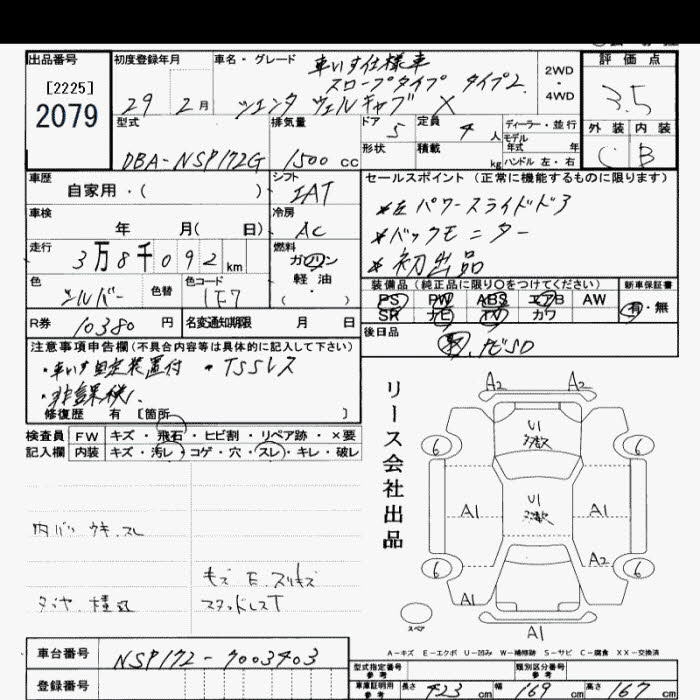 出品番号
[2225]
2079
初度登録年月
29 2月
車名・グレード
車いす仕様車
スロープタイプ タイプ2
シエンタ ウェルキャブ X
2WD
・
4WD
評価点
3.5
外装 内装
C B
型式
DBA-NSP172G
排気量
1500 cc
ドア 5
定員 4 人
ディーラー・並行
モデル年式 年
形状
積載 kg
ハンドル 左・右
車歴
自家用・( )
シフト
IAT
セールスポイント (正常に機能するものに限ります)
*左パワースライドドア
*バックモニター
*初出品
車検
年 月( 日)
冷房
AC
走行
3万8千092 km
燃料
ガソリン
軽油
・( )
色
シルバー
色替
色コード
1F7
装備品 (純正品に限り○をつけてください)
PS PW ABS エアB AW
SR ナビ TV カワ
新車保証書
有・無
R券
10380 円
名変通知期限 月 日
後日品
注意事項申告欄(不具合内容等は具体的に記入して下さい)
・車いす固定装置付 ・TSSレス
・非貫禁煙
修復歴 有 [箇所 ]
リース会社出品
検査員
記入欄
FW キズ・飛石・ヒビ割・リペア跡・×要
内装 キズ・汚レ・コゲ・穴・スレ・キレ・破レ
内バリ ウキ.スレ
キズ E.スリキズ
スタッドレスT
A2 A2
U1
6 6
A1
U1
A1
A2
6 6
A1
スペア
A1
A-キズ E-エクボ U-凹み W-補修跡 S-サビ C-腐食 XX-交換済
車台番号
NSP172-7003403
登録番号
型式指定番号
参考
類別区分番号
参考
車庫証明用
参考
長さ 423 cm 幅 169 cm 高さ 167 cm